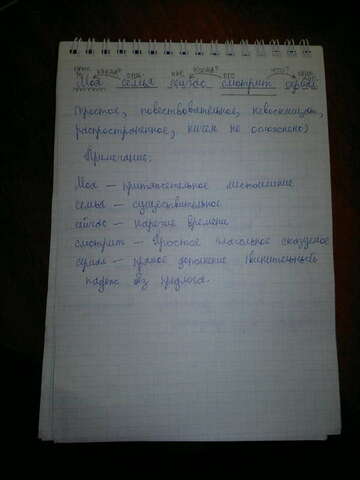 какая? когда? что?
Моя семья сейчас смотрит сериал
(простое, повествовательное, невосклицат.,
распространенное, ничем не осложнено)
Примечание:
Моя — притяжательное местоимение
семья — существительное
сейчас — наречие времени
смотрит — простое глагольное сказуемое
сериал — прямое дополнение (винительный
падеж без предлога.